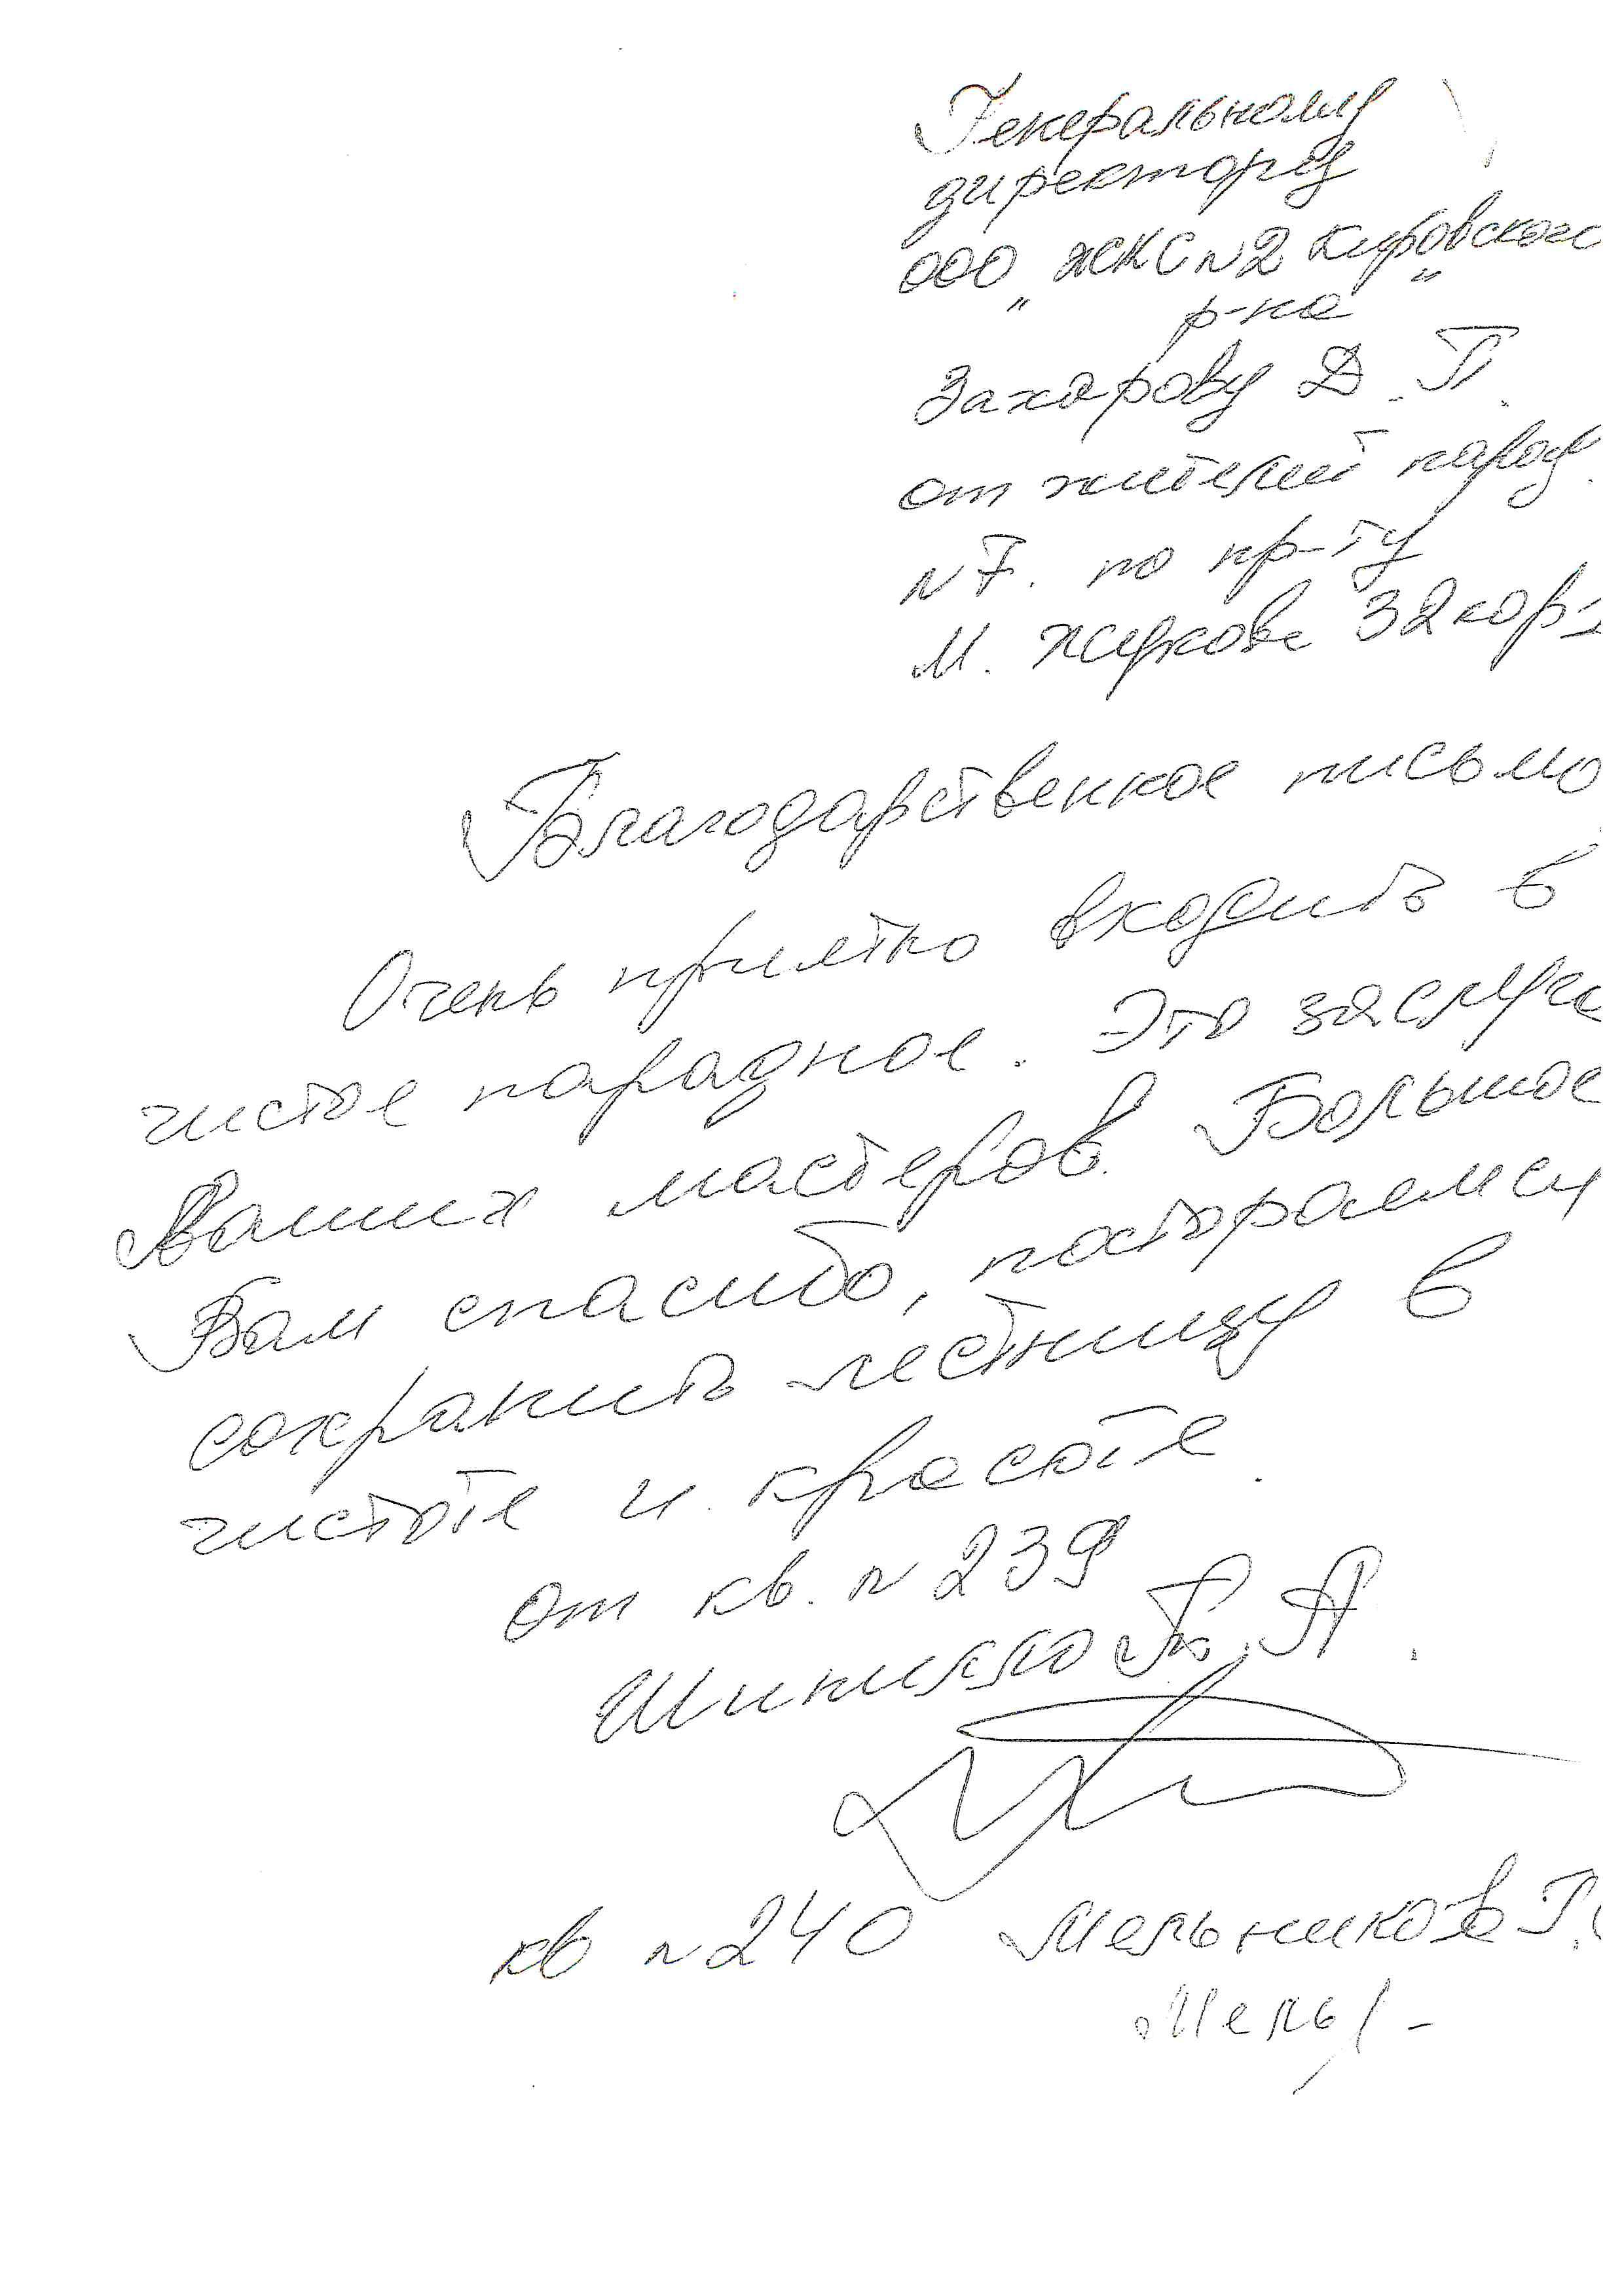 Генеральному
директору
ООО „ЖКС N2 Кировского
р-на"
Захарову Д. П.
от жителей парад.
N 7. по пр-ту
М. Жукова 32 кор 1
Благодарственное письмо.
Очень приятно входить в
чистое парадное. Это заслуга
Ваших мастеров. Большое
Вам спасибо, постараемся
сохранить лестницу в
чистоте и красоте.
от кв. N 239
Шинилло Б. А.
кв N 240 Мельникова Г.
Мель